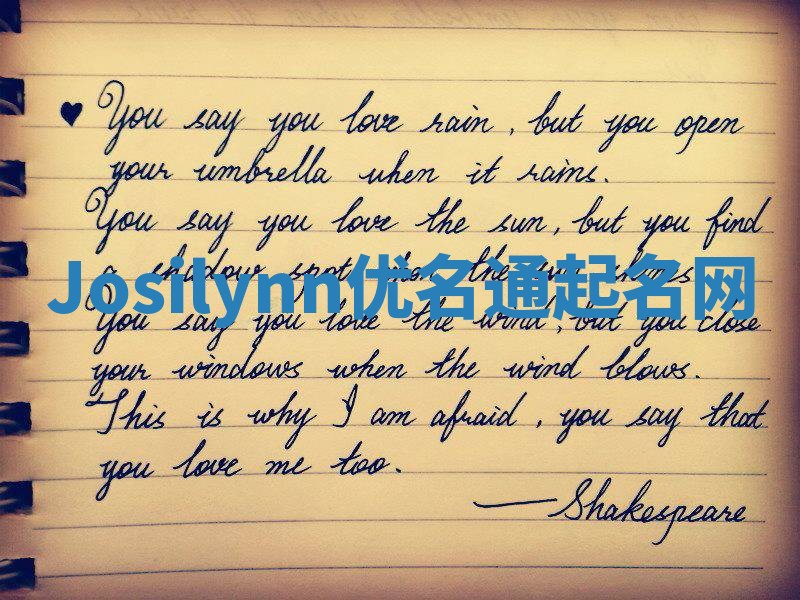 ♥ You say you love rain, but you open
your umbrella when it rains.
You say you love the sun, but you find
a shadow spot when the sun shines
Josilynn优名通起名网
You say you love the wind, but you close
your windows when the wind blows.
This is why I am afraid, you say that
you love me too.
— Shakespeare